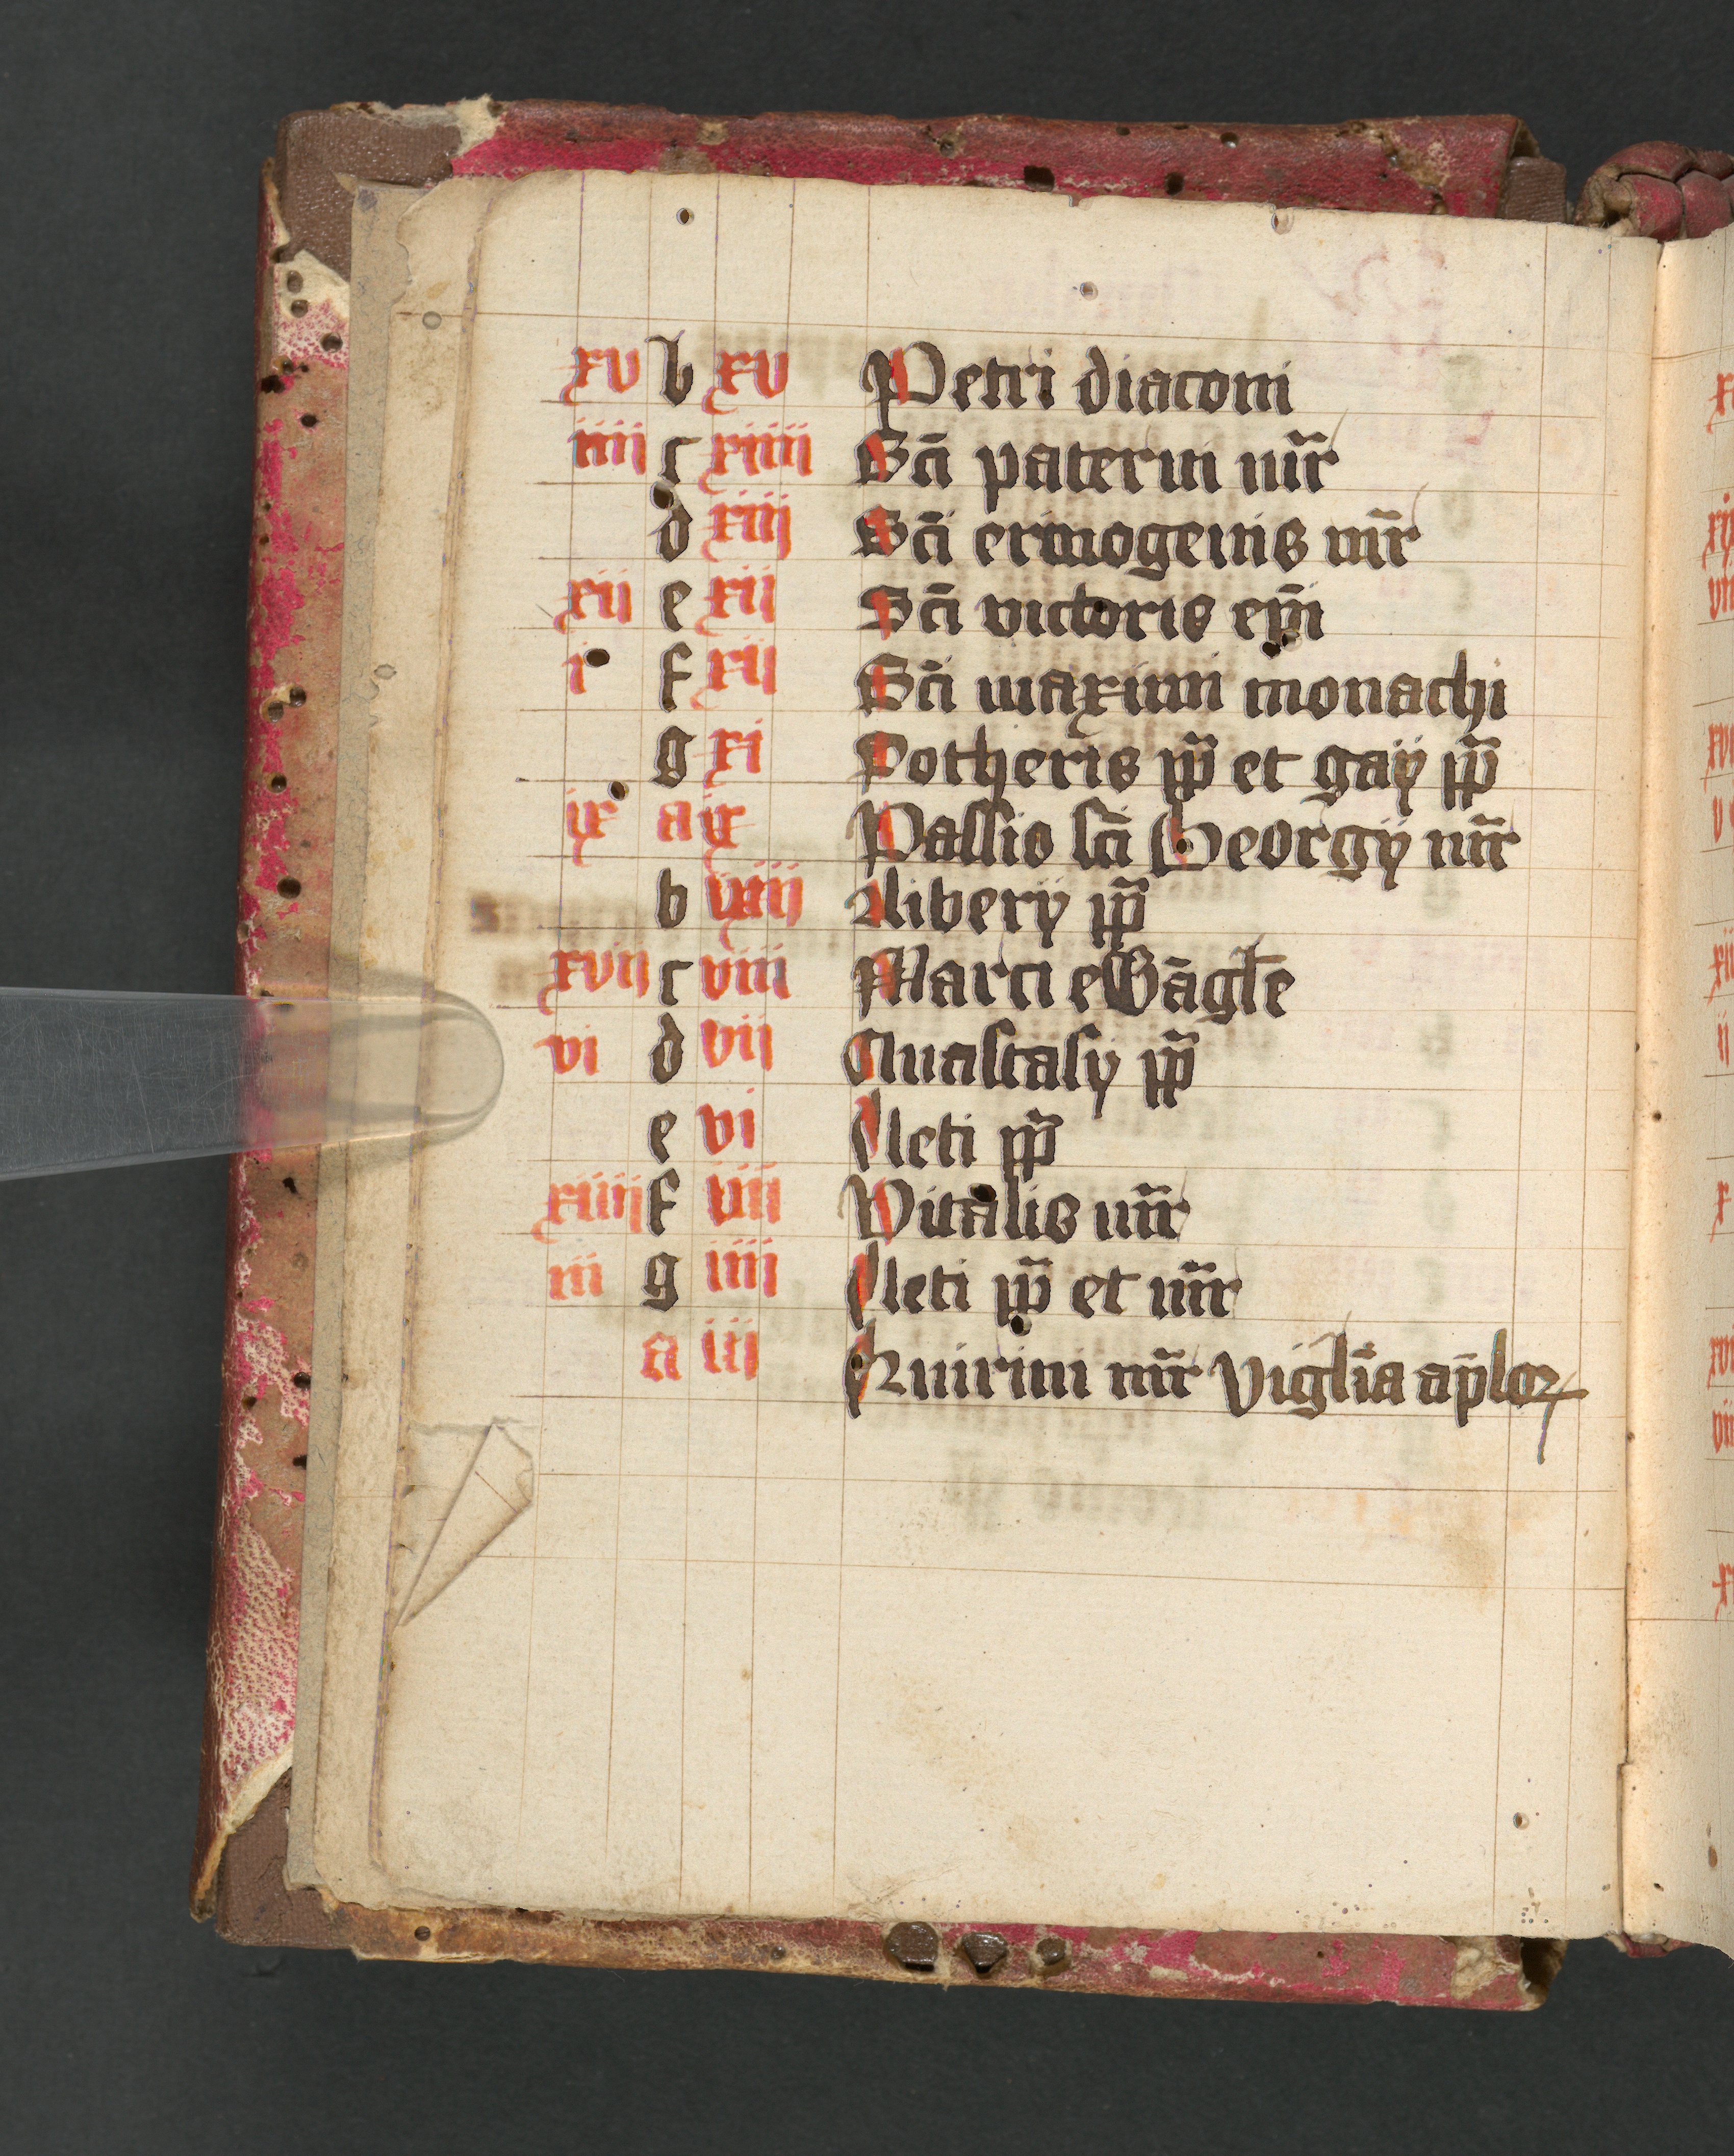 xv b xv Petri diaconi
iiij c xiiij Scī paterni mr̄
d xiij Scī ermogenis mr̄
xii e xij Scī victoris ep̄i
i f xij Scī maximi monachi
g xi Sotheris pp̄ et gaÿ pp̄
ix a ix Passio scī Georgÿ mr̄
b viiij liberÿ pp̄
xvij c viii Marci ewāgłe
vi d vij Anastasÿ pp̄
e vi Cleti pp̄
xiiij f Vitalis mr̄
iii g iiij Cleti pp̄ et mr̄
a iij Quirini mr̄ vigl̄ia ap̄loꝝ